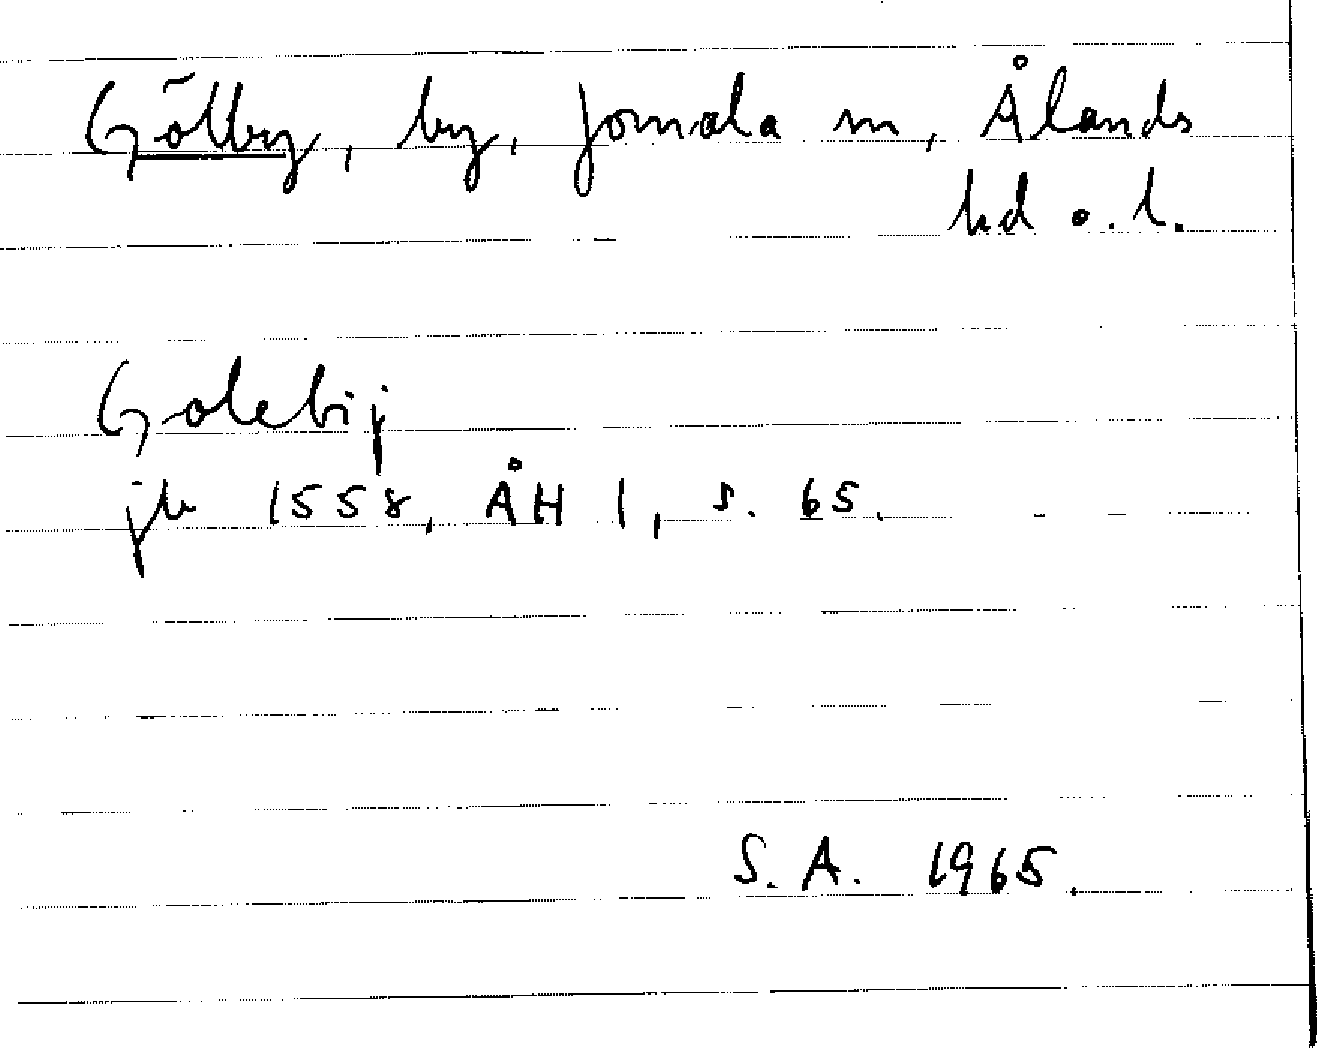 Gölby, by, Jomala sn, Ålands
hd o. l.
Golebij
jb 1558, ÅH 1, s. 65.
S.A. 1965.